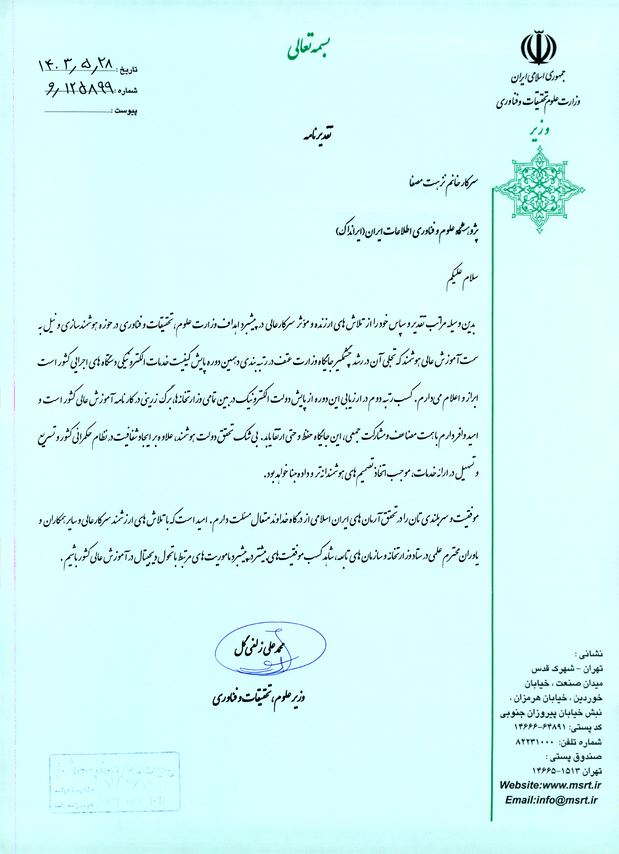 بسمه تعالی
جمهوری اسلامی ایران
وزارت علوم، تحقیقات و فناوری
وزیر
تاریخ: ۱۴۰۳٫۵٫۲۸
شماره: ۱۲۵۸۹۹٫و
پیوست:
تقدیرنامه
سرکار خانم نزهت مصفا
پژوهشگاه علوم و فناوری اطلاعات ایران (ایرانداک)
سلام علیکم
بدین وسیله مراتب تقدیر و سپاس خود را از تلاش های ارزنده و مؤثر سرکارعالی در پیشبرد اهداف وزارت علوم، تحقیقات و فناوری در حوزه هوشمندسازی و نیل به
سمت آموزش عالی هوشمند که تجلی آن در رشد چشمگیر جایگاه وزارت عتف در رتبه بندی دهمین دوره پایش کیفیت خدمات الکترونیکی دستگاه های اجرایی کشور است
ابراز و اعلام می دارم. کسب رتبه دوم در ارزیابی این دوره از پایش دولت الکترونیک در بین تمامی وزارتخانه ها، برگ زرینی در کارنامه آموزش عالی کشور است و
امید وافر دارم با همت مضاعف و مشارکت جمعی، این جایگاه حفظ و حتی ارتقا یابد. بی شک تحقق دولت هوشمند، علاوه بر ایجاد شفافیت در نظام حکمرانی کشور و تسریع
و تسهیل در ارائه خدمات، موجب اتخاذ تصمیم های هوشمندانه تر و داده مبنا خواهد بود.
موفقیت و سربلندی تان را در تحقق آرمان های ایران اسلامی از درگاه خداوند متعال مسئلت دارم. امید است که با تلاش های ارزشمند سرکارعالی و سایر همکاران و
یاوران محترم علمی در ستاد وزارتخانه و سازمان های تابعه، شاهد کسب موفقیت های بیشتر در پیشبرد ماموریت های مرتبط با تحول دیجیتال در آموزش عالی کشور باشیم.
محمدعلی زلفی گل
وزیر علوم، تحقیقات و فناوری
نشانی:
تهران - شهرک قدس
میدان صنعت، خیابان
خوردین، خیابان هرمزان،
نبش خیابان پیروزان جنوبی
کد پستی: ۶۴۸۹۱-۱۴۶۶۶
شماره تلفن: ۸۲۲۳۱۰۰۰
صندوق پستی:
تهران ۱۵۱۳-۱۴۶۶۵
Website:www.msrt.ir
Email:info@msrt.ir